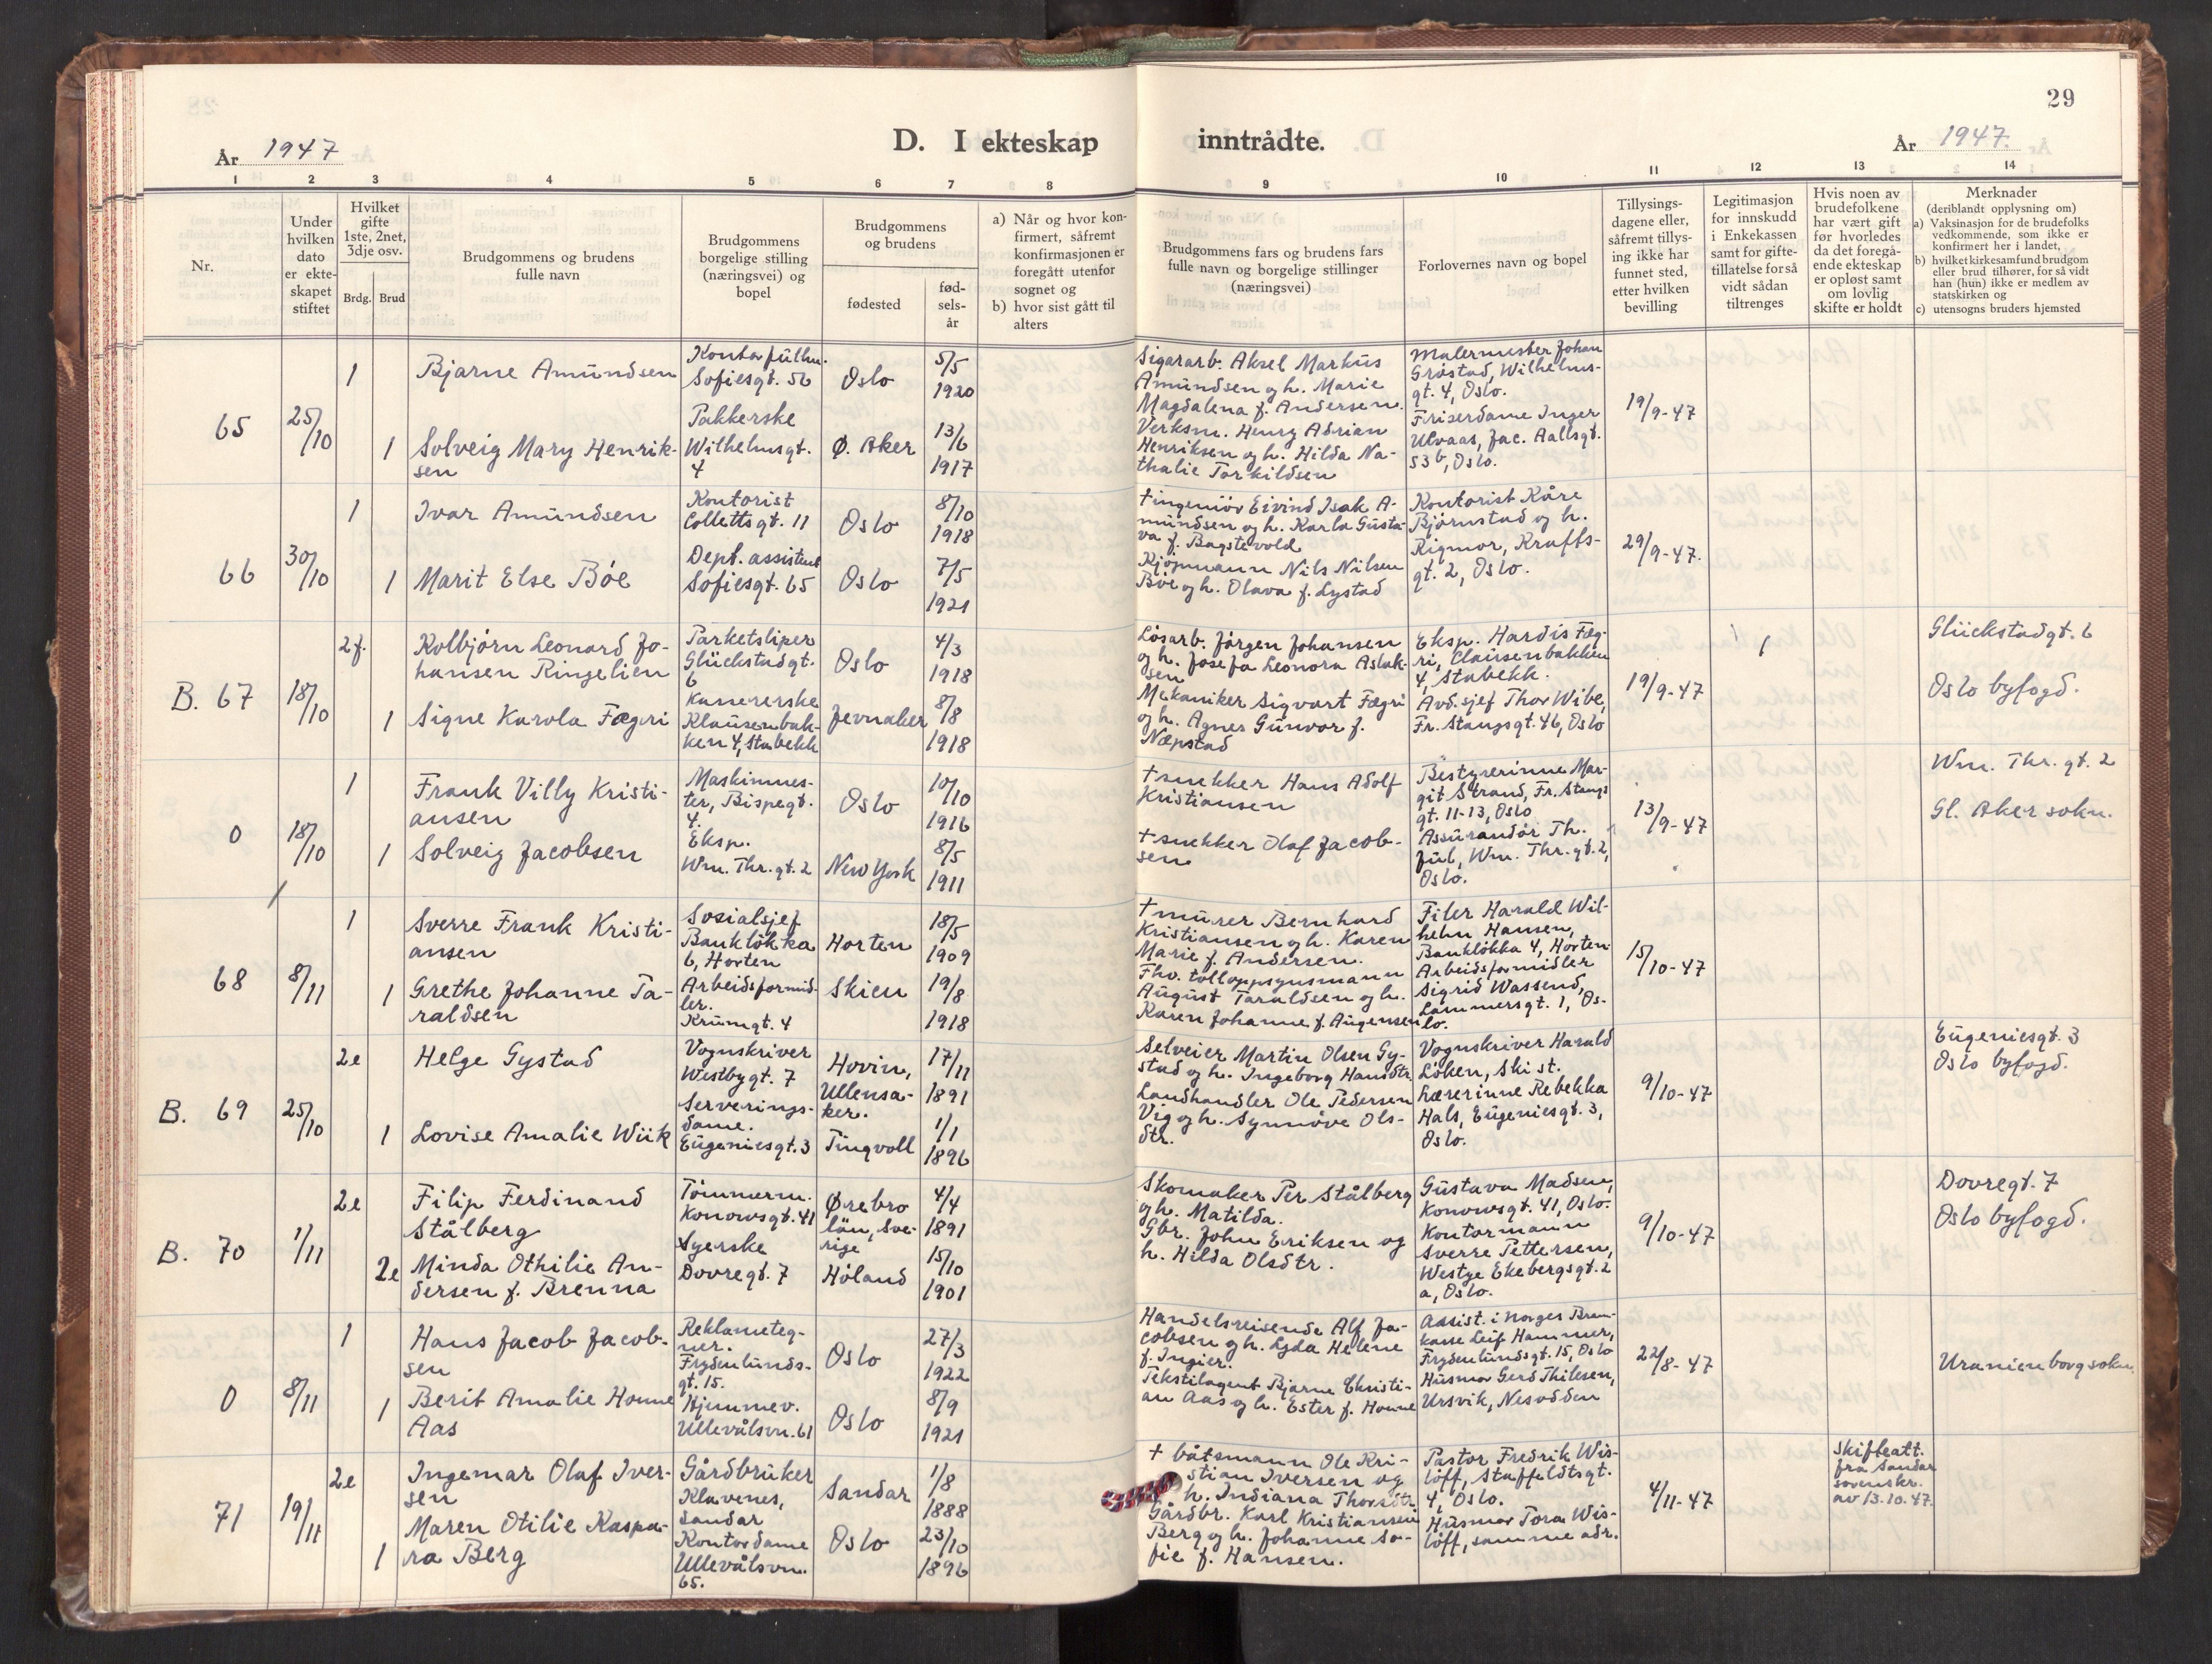 29
År 1947
D. I ekteskap inntrådte.
År 1947.
1 2 3 4 5 6 7 8 9 10 11 12 13 14
Nr.
Under hvilken dato er ekteskapet stiftet
Hvilket gifte 1ste, 2net, 3dje osv.
Brdg. Brud
Brudgommens og brudens fulle navn
Brudgommens borgelige stilling (næringsvei) og bopel
Brudgommens og brudens
fødested
fødselsår
a) Når og hvor konfirmert, såfremt konfirmasjonen er foregått utenfor sognet og
b) hvor sist gått til alters
Brudgommens fars og brudens fars fulle navn og borgelige stillinger (næringsvei)
Forlovernes navn og bopel
Tillysingsdagene eller, såfremt tillysing ikke har funnet sted, etter hvilken bevilling
Legitimasjon for innskudd i Enkekassen samt for giftetillatelse for så vidt sådan tiltrenges
Hvis noen av brudefolkene har vært gift før hvorledes da det foregående ekteskap er opløst samt om lovlig skifte er holdt
Merknader
(deriblandt opplysning om)
a) Vaksinasjon for de brudefolks vedkommende, som ikke er konfirmert her i landet,
b) hvilket kirkesamfund brudgom eller brud tilhører, for så vidt han (hun) ikke er medlem av statskirken og
c) utensogns bruders hjemsted
65
25/10
1
Bjarne Amundsen
Sofiesgt. 56
Oslo
5/5
1920
1
Solveig Mary Henrik-
sen
Pakkerske
Wilhelmsgt.
4
Ø. Aker
13/6
1917
Sigararb. Aksel Markus
Amundsen og h. Marie
Magdalena f. Andersen.
Verksm. Henry Adrian
Henriksen og h. Hilda Na-
thalie Torkildsen
Malermester Johan
Grøstad, Wilhelms-
gt. 4, Oslo.
Friserdame Inger
Ulvaas, Jac. Aallsgt.
53b, Oslo.
19/9-47
66
30/10
1
Ivar Amundsen
Kontorist
Collettsgt. 11
Oslo
8/10
1918
1
Marit Else Bøe
Dept. assistent
Sofiesgt. 65
Oslo
7/5
1921
+ ingeniør Eivind Isak A-
mundsen og h. Karla Gusta-
va f. Bagstevold
Kjøpmann Nils Nilsen
Bøe og h. Olava f. Lystad
Kontorist Kåre
Bjørnstad og h.
Rigmor, Krafts-
gt. 2, Oslo.
29/9-47.
B. 67
18/10
2f.
Kolbjørn Leonard Jo-
hansen Ringelien
Parketsliper
Glückstadgt.
6
Oslo
4/3
1918
1
Signe Karola Fægri
Kasererske
Klausenbak-
ken 4, Stabekk
Jevnaker
8/8
1918
Løsarb. Jørgen Johansen
og h. Josefa Leonora Aslak-
sen
Mekaniker Sigvart Fægri
og h. Agnes Gunvor f.
Næpstad
Eksp. Hardis Fæg-
ri, Clausenbakken
4, Stabekk.
Avd. sjef Thor Wibe,
Fr. Stangsgt. 46, Oslo
19/9-47
1
Glückstadgt. 6
Oslo byfogd.
0
18/10
1
Frank Villy Kristi-
ansen
Maskinmes-
ter, Bispegt.
4.
Oslo
10/10
1916
1
Solveig Jacobsen
Eksp.
Wm. Thr. gt. 2
New York
8/5
1911
+ snekker Hans Adolf
Kristiansen
+ snekker Olaf Jacob-
sen
Bestyrerinne Mar-
git Strand, Fr. Stangs
gt. 11-13, Oslo
Assurandør Th.
Juul, Wm. Thr. gt. 2,
Oslo.
13/9-47
Wm. Thr. gt. 2
Gl. Aker sokn.
68
8/11
1
Sverre Frank Kristi-
ansen
Sosialsjef
Bankløkka
6, Horten
Horten
18/5
1909
1
Grethe Johanne Ta-
raldsen
Arbeidsformid-
ler.
Krumgt. 4
Skien
19/8
1918
+ murer Bernhard
Kristiansen og h. Karen
Marie f. Andersen.
Fhv. tolloppsynsmann
August Taraldsen og h.
Karen Johanne f. Augensen
Filer Harald Wil-
helm Hansen,
Bankløkka 4, Horten
Arbeidsformidler
Sigrid Wassend,
Lammersgt. 1, Os-
lo.
15/10-47
B. 69
25/10
2e
Helge Gystad
Vognskriver
Westbygt. 7
Hovin,
Ullensa-
ker.
17/11
1891
1
Lovise Amalie Wiik
Serverings-
dame.
Eugeniesgt. 3
Tingvoll
1/1
1896
Selveier Martin Olsen Gy-
stad og h. Ingeborg Hansdtr.
Landhandler Ole Pedersen
Vig og h. Synnøve Ols-
dtr.
Vognskriver Harald
Løken, Ski st.
Lærerinne Rebekka
Hals, Eugeniesgt. 3,
Oslo.
9/10-47
Eugeniesgt. 3
Oslo byfogd.
B. 70
1/11
2e
Filip Ferdinand
Stålberg
Tømmerm.
Konowsgt. 41
Ørebro
län, Sve-
rige
4/4
1891
2e
Minda Othilie An-
dersen f. Brenna
Syerske
Dovregt. 7
Høland
15/10
1901
Skomaker Per Stålberg
og h. Matilda.
Gbr. John Eriksen og
h. Hilda Olsdtr.
Gustava Madsen,
Konowsgt. 41, Oslo.
Kontormann
Sverre Pettersen,
Westye Ekebergsgt. 2
a, Oslo.
9/10-47
Dovregt. 7
Oslo byfogd.
0
8/11
1
Hans Jacob Jacob-
sen
Reklameteg-
ner.
Frydenlunds-
gt. 15.
Oslo
27/3
1922
1
Berit Amalie Honne
Aas
Hjemmev.
Ullevålsvn. 61
Oslo
8/9
1921
Handelsreisende Alf Ja-
cobsen og h. Lyda Helene
f. Ingier.
Tekstilagent Bjarne Christi-
an Aas og h. Ester f. Honne
Assist. i Norges Bran-
kasse Leif Hammer,
Frydenlundsgt. 15, Oslo
Husmor Gerd Thilesen,
Ursvik, Nesodden
22/8-47
Uranienborg sokn.
71
19/11
2e
Ingemar Olaf Iver-
sen
Gårdbruker
Klavenes,
Sandar
Sandar
1/8
1888
1
Maren Otilie Kaspa-
ra Berg
Kontordame
Ullevålsvn.
65.
Oslo
23/10
1896
+ båtsmann Ole Kri-
stian Iversen og
h. Indiana Thorsdtr.
Gårdbr. Karl Kristiansen
Berg og h. Johanne So-
fie f. Hansen.
Pastor Fredrik Wis-
løff, Staffeldtsgt.
4, Oslo.
Husmor Tora Wis-
løff, samme adr.
4/11-47
Skifteatt.
fra Sandar
sorenskr.
av 13.10.47.